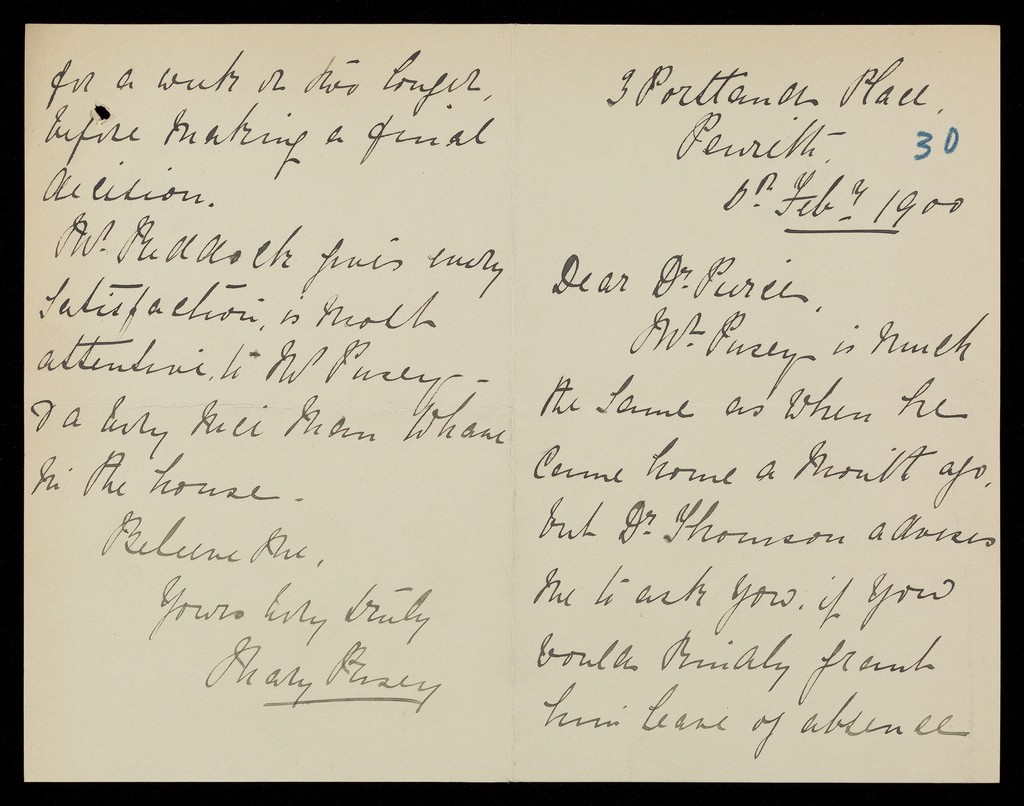 3 Portland Place,
Penrith.
30
Feby 1900
Dear Dr. Pierce,
Mr. Pusey is much
the same as when he
came home a month ago,
but Dr. Thomson advises
me to ask you, if you
would kindly grant
him leave of absence
for a week or two longer,
before making a final
decision.
Mr. Reddock gives every
satisfaction, is most
attentive, to Mr Pusey –
& a very nice man to have
in the house –
Believe me,
Yours very truly
Mary Pusey